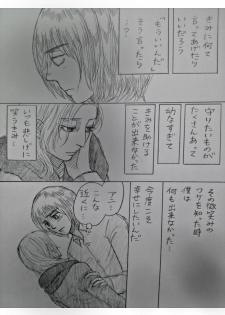 きみに何て
言ってあげたら
いいだろう
「もういいんだ」
そう言ったら
…?
守りたいものが
たくさんあって
幼なすぎて
きみを助ける
ことが出来なかった
いつも悲しげに
笑うきみ…
その微笑みの
つけを知った時
僕は
何も出来なかった…
今度こそ
幸せにしたいんだ
アニ…
こんな
近くに